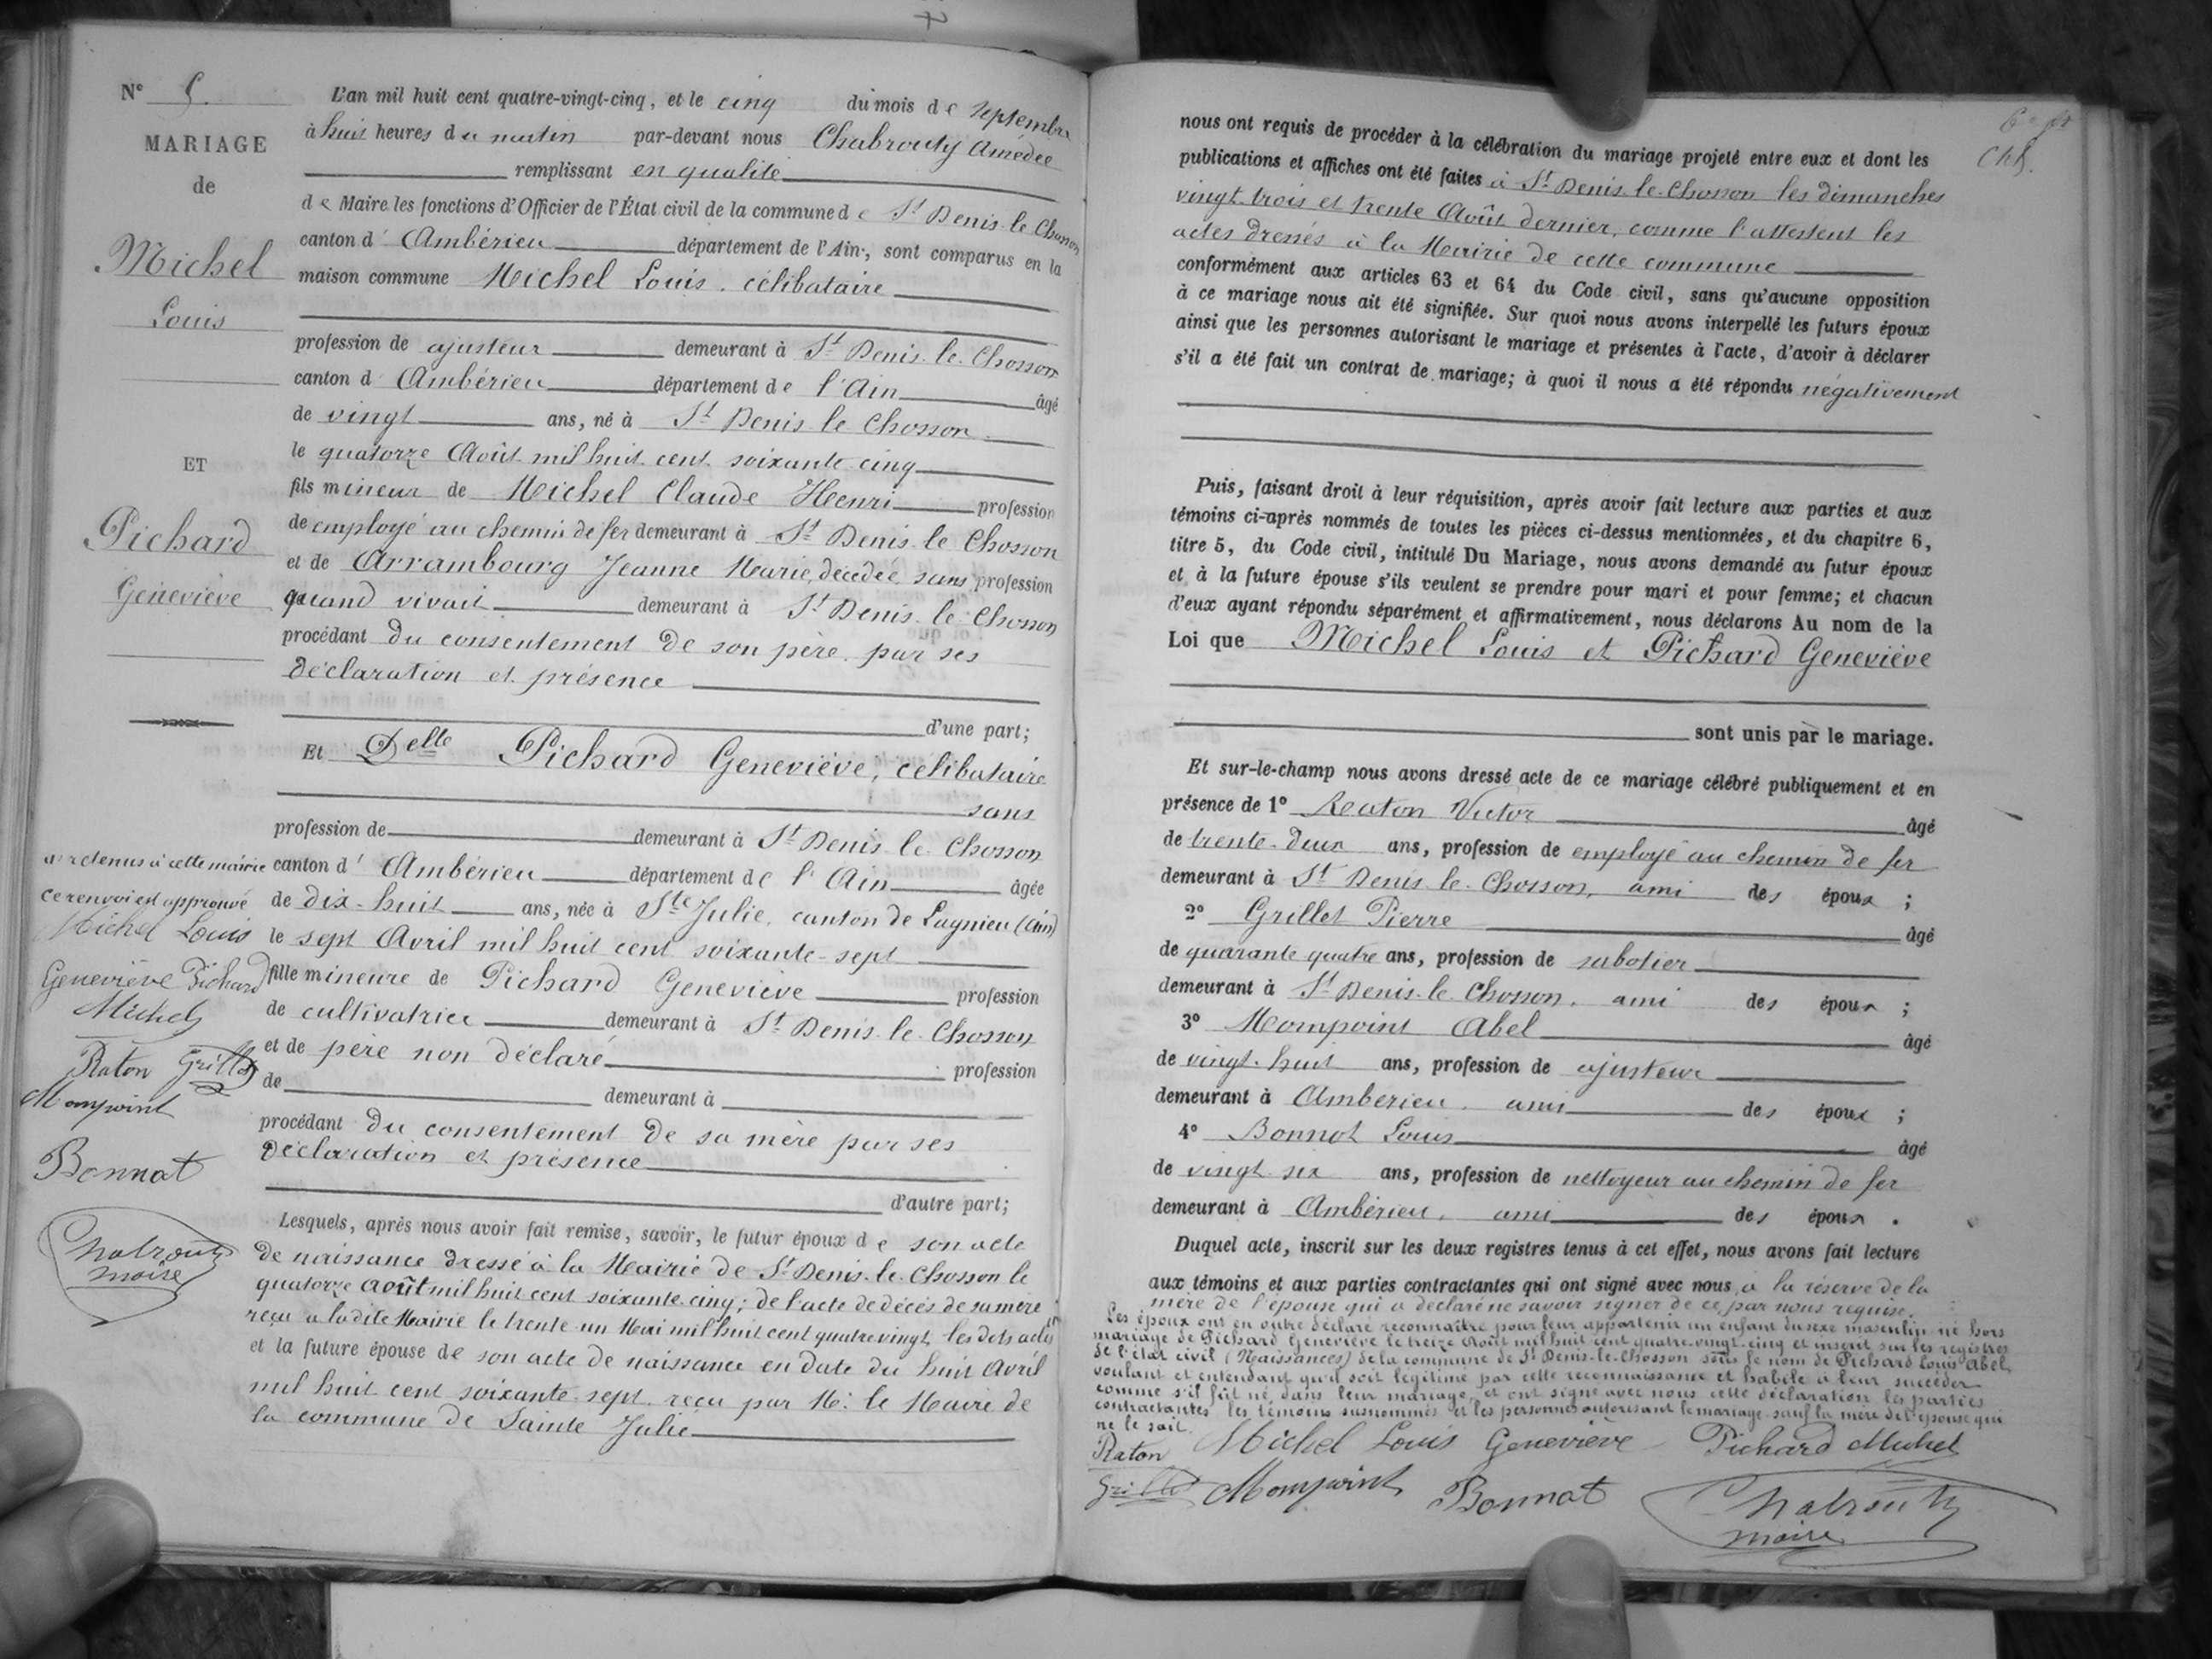 N° 5.
MARIAGE
de
Michel
Louis
ET
Pichard
Geneviève
L'an mil huit cent quatre-vingt-cinq, et le cinq du mois de septembre
à huit heures du matin par-devant nous Chabrouty Amédée
remplissant en qualité
de Maire les fonctions d'Officier de l'État civil de la commune de St Denis-le-Chosson
canton d'Ambérieu département de l'Ain, sont comparus en la
maison commune Michel Louis, célibataire
profession de ajusteur demeurant à St Denis-le-Chosson
canton d'Ambérieu département de l'Ain âgé
de vingt ans, né à St Denis le Chosson
le quatorze Août mil huit cent soixante cinq
fils mineur de Michel Claude Henri profession
de employé au chemin de fer demeurant à St Denis-le Chosson
et de Arrambourg Jeanne Marie, décédée, sans profession
quand vivait demeurant à St Denis-le-Chosson
procédant du consentement de son père par ses
déclaration et présence
d'une part;
Et Delle Pichard Geneviève, célibataire
sans
profession de demeurant à St Denis-le-Chosson
canton d'Ambérieu département de l'Ain âgée
de dix-huit ans, née à Ste Julie, canton de Lagnieu (Ain)
le sept Avril mil huit cent soixante-sept
fille mineure de Pichard Geneviève profession
de cultivatrice demeurant à St Denis-le-Chosson
et de père non déclaré profession
de demeurant à
procédant du consentement de sa mère par ses
déclaration et présence
d'autre part;
Lesquels, après nous avoir fait remise, savoir, le futur époux de son acte
de naissance dressé à la Mairie de St Denis-le-Chosson le
quatorze août mil huit cent soixante-cinq; de l'acte de décès de sa mère
reçu à la dite Mairie le trente-un Mai mil huit cent quatre vingt, les dits actes
et la future épouse de son acte de naissance en date du huit Avril
mil huit cent soixante-sept, reçu par M. le Maire de
la commune de Sainte Julie
retenus à cette mairie
ce renvoi est approuvé
Michel Louis
Geneviève Pichard
Michel
Raton Grillet
Mompoint
Bonnat
Chabrouty
maire
Chb.
nous ont requis de procéder à la célébration du mariage projeté entre eux et dont les
publications et affiches ont été faites à St Denis-le-Chosson les dimanches
vingt-trois et trente Août dernier, comme l'attestent les
actes dressés à la Mairie de cette commune
conformément aux articles 63 et 64 du Code civil, sans qu'aucune opposition
à ce mariage nous ait été signifiée. Sur quoi nous avons interpellé les futurs époux
ainsi que les personnes autorisant le mariage et présentes à l'acte, d'avoir à déclarer
s'il a été fait un contrat de mariage; à quoi il nous a été répondu négativement
Puis, faisant droit à leur réquisition, après avoir fait lecture aux parties et aux
témoins ci-après nommés de toutes les pièces ci-dessus mentionnées, et du chapitre 6,
titre 5, du Code civil, intitulé Du Mariage, nous avons demandé au futur époux
et à la future épouse s'ils veulent se prendre pour mari et pour femme; et chacun
d'eux ayant répondu séparément et affirmativement, nous déclarons Au nom de la
Loi que Michel Louis et Pichard Geneviève
sont unis par le mariage.
Et sur-le-champ nous avons dressé acte de ce mariage célébré publiquement et en
présence de 1° Reaton Victor âgé
de trente-deux ans, profession de employé au chemin de fer
demeurant à St Denis-le-Chosson, ami des époux ;
2° Grillet Pierre âgé
de quarante quatre ans, profession de sabotier
demeurant à St Denis-le-Chosson, ami des époux ;
3° Mompoint Abel âgé
de vingt-huit ans, profession de ajusteur
demeurant à Amberieu, ami des époux ;
4° Bonnot Louis âgé
de vingt-six ans, profession de nettoyeur au chemin de fer
demeurant à Ambérieu, ami des époux .
Duquel acte, inscrit sur les deux registres tenus à cet effet, nous avons fait lecture
aux témoins et aux parties contractantes qui ont signé avec nous, à la réserve de la
mère de l'épouse qui a déclaré ne savoir signer de ce, par nous requise.
Les époux ont en outre déclaré reconnaître pour leur appartenir un enfant du sexe masculin né hors
mariage de Pichard Geneviève le treize Août mil huit cent quatre-vingt-cinq et inscrit sur les registres
de l'état civil (Naissances) de la commune de St Denis-le-Chosson sous le nom de Pichard Louis Abel,
voulant et entendant qu'il soit légitimé par cette reconnaissance et habile à leur succéder
comme s'il fût né dans leur mariage, et ont signé avec nous cette déclaration les parties
contractantes les témoins susnommés et les personnes autorisant le mariage sauf la mère de l'épouse qui
ne le sait.
Raton Michel Louis Geneviève Pichard Michel
Grillet Mompoint Bonnat Chabrouty
maire